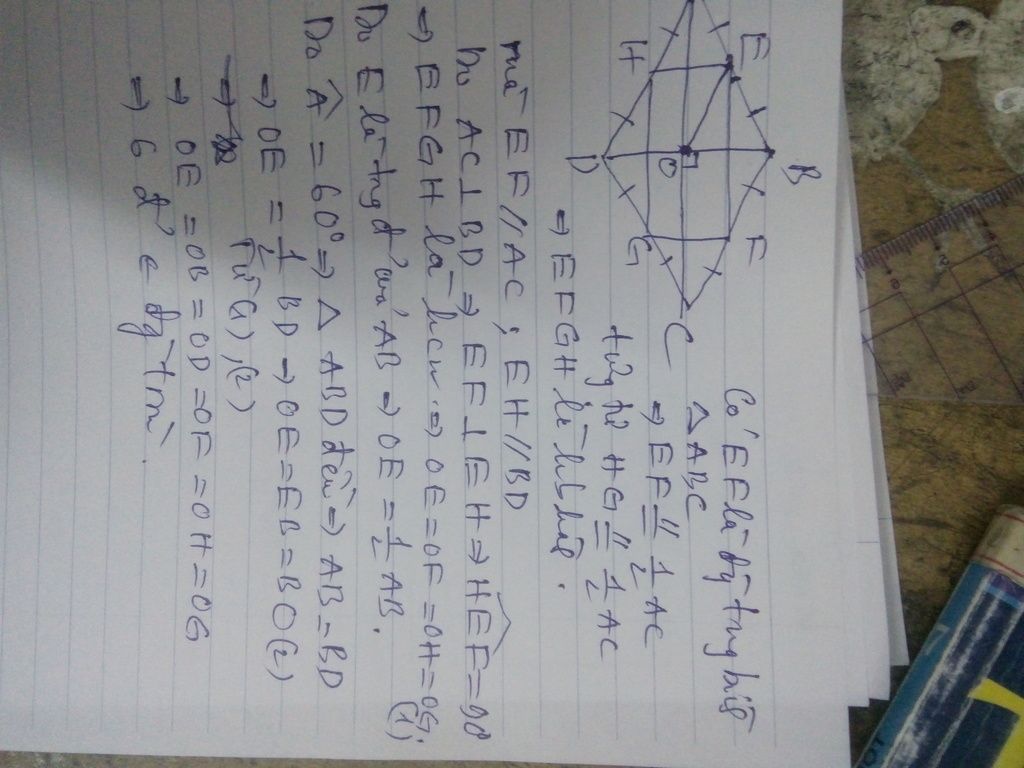 E
B
H
O
F
D
G
C
Có EF là đg tr bình
△ ABC
⇒ EF // = 1/2 AC
tương tự HG // = 1/2 AC
⇒ EFGH là hbhành.
mà EF // AC ; EH // BD
Do AC ⊥ BD ⇒ EF ⊥ EH ⇒ HEF = 90
⇒ EFGH là hcn ⇒ OE = OF = OH = OG. (1)
Do E là trg đ' của AB ⇒ OE = 1/2 AB.
Do  = 60° ⇒ △ ABD đều ⇒ AB = BD
⇒ OE = 1/2 BD ⇒ OE = EB = BO (2)
Từ (1), (2)
⇒ OE = OB = OD = OF = OH = OG
⇒ 6 đ' ∈ đg tròn.